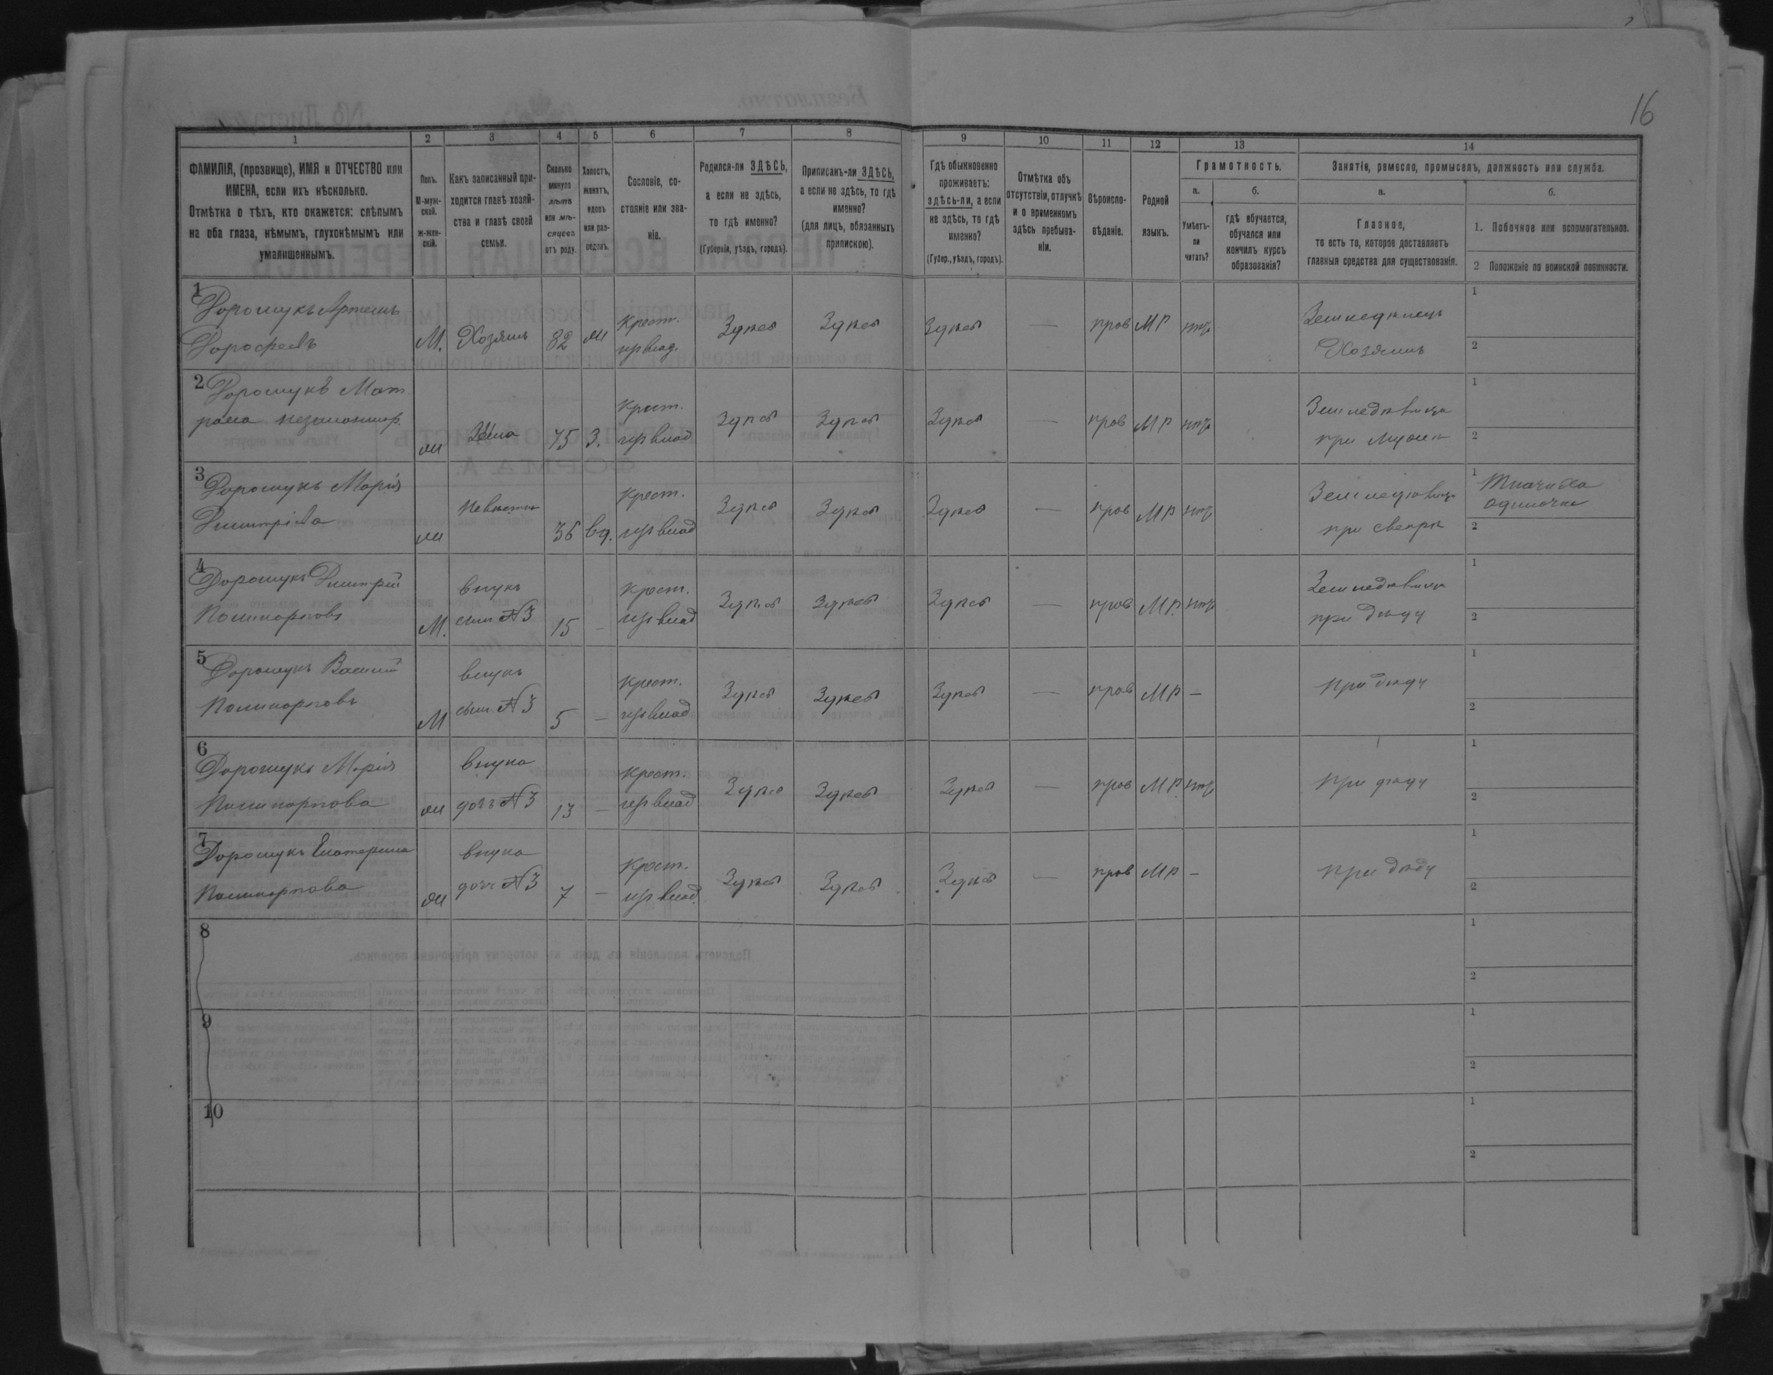 16
1 2 3 4 5 6 7 8 9 10 11 12 13 14
ФАМИЛІЯ, (прозвище), ИМЯ и ОТЧЕСТВО или
ИМЕНА, если ихъ нѣсколько.
Отмѣтка о тѣхъ, кто окажется: слѣпымъ
на оба глаза, нѣмымъ, глухонѣмымъ или
умалишеннымъ.
Полъ.
М-муж-
ской.
ж-жен-
скій.
Какъ записанный при-
ходится главѣ хозяй-
ства и главѣ своей
семьи.
Сколько
минуло
лѣтъ
или мѣ-
сяцевъ
отъ роду.
Холостъ,
женатъ,
вдовъ
или раз-
веденъ.
Сословіе, со-
стояніе или зва-
ніе.
Родился-ли ЗДѢСЬ,
а если не здѣсь,
то гдѣ именно?
(Губернія, уѣздъ, городъ).
Приписанъ-ли ЗДѢСЬ,
а если не здѣсь, то гдѣ
именно?
(для лицъ, обязанныхъ
припискою).
Гдѣ обыкновенно
проживаетъ:
здѣсь-ли, а если
не здѣсь, то гдѣ
именно?
(Губер., уѣздъ, городъ).
Отмѣтка объ
отсутствіи, отлучкѣ
и о временномъ
здѣсь пребыва-
ніи.
Вѣроиспо-
вѣданіе.
Родной
языкъ.
Грамотность.
а.
Умѣетъ-
ли
читать?
б.
гдѣ обучается,
обучался или
кончилъ курсъ
образованія?
Занятія, ремесло, промыселъ, должность или служба.
а.
Главное,
то есть то, которое доставляетъ
главныя средства для существованія.
б.
1. Побочное или вспомогательное.
2 Положеніе по воинской повинности.
1 Дорошукъ Артемъ
Дорофеевъ
М. Хозяинъ 82 ж Крест. из влад. Здѣсь Здѣсь Здѣсь — прав МР нтр
Земледѣлецъ
Хозяинъ
1
2
2 Дорошукъ Мат
рона
ж Жена 75 З. Крест. из влад Здѣсь Здѣсь Здѣсь — прав МР нтр
при мужѣ
1
2
3 Дорошукъ Марія
Димитріева
ж Невѣстка 36 вд. Крест. из влад Здѣсь Здѣсь Здѣсь — прав МР нтр
при свекрѣ
1 Ткачиха
одиночка
2
4 Дорошукъ Димитрій
Поликарповъ
М. внукъ
сынъ №3 15 - Крест. из влад Здѣсь Здѣсь Здѣсь — прав МР. нтр
при дѣду
1
2
5 Дорошукъ Василій
Поликарповъ
М внукъ
сынъ №3 5 — Крест. из влад Здѣсь Здѣсь Здѣсь — прав МР —
при дѣду
1
2
6 Дорошукъ Марія
Поликарпова
ж внука
доч №3 13 — Крест. из влад Здѣсь Здѣсь Здѣсь — прав МР. нтр
при дѣду
1
2
7 Дорошукъ Екатерина
Поликарпова
ж внука
доч №3 7 — Крест. из влад. Здѣсь Здѣсь Здѣсь — прав МР —
при дѣду
1
2
8
1
2
9
1
2
10
1
2